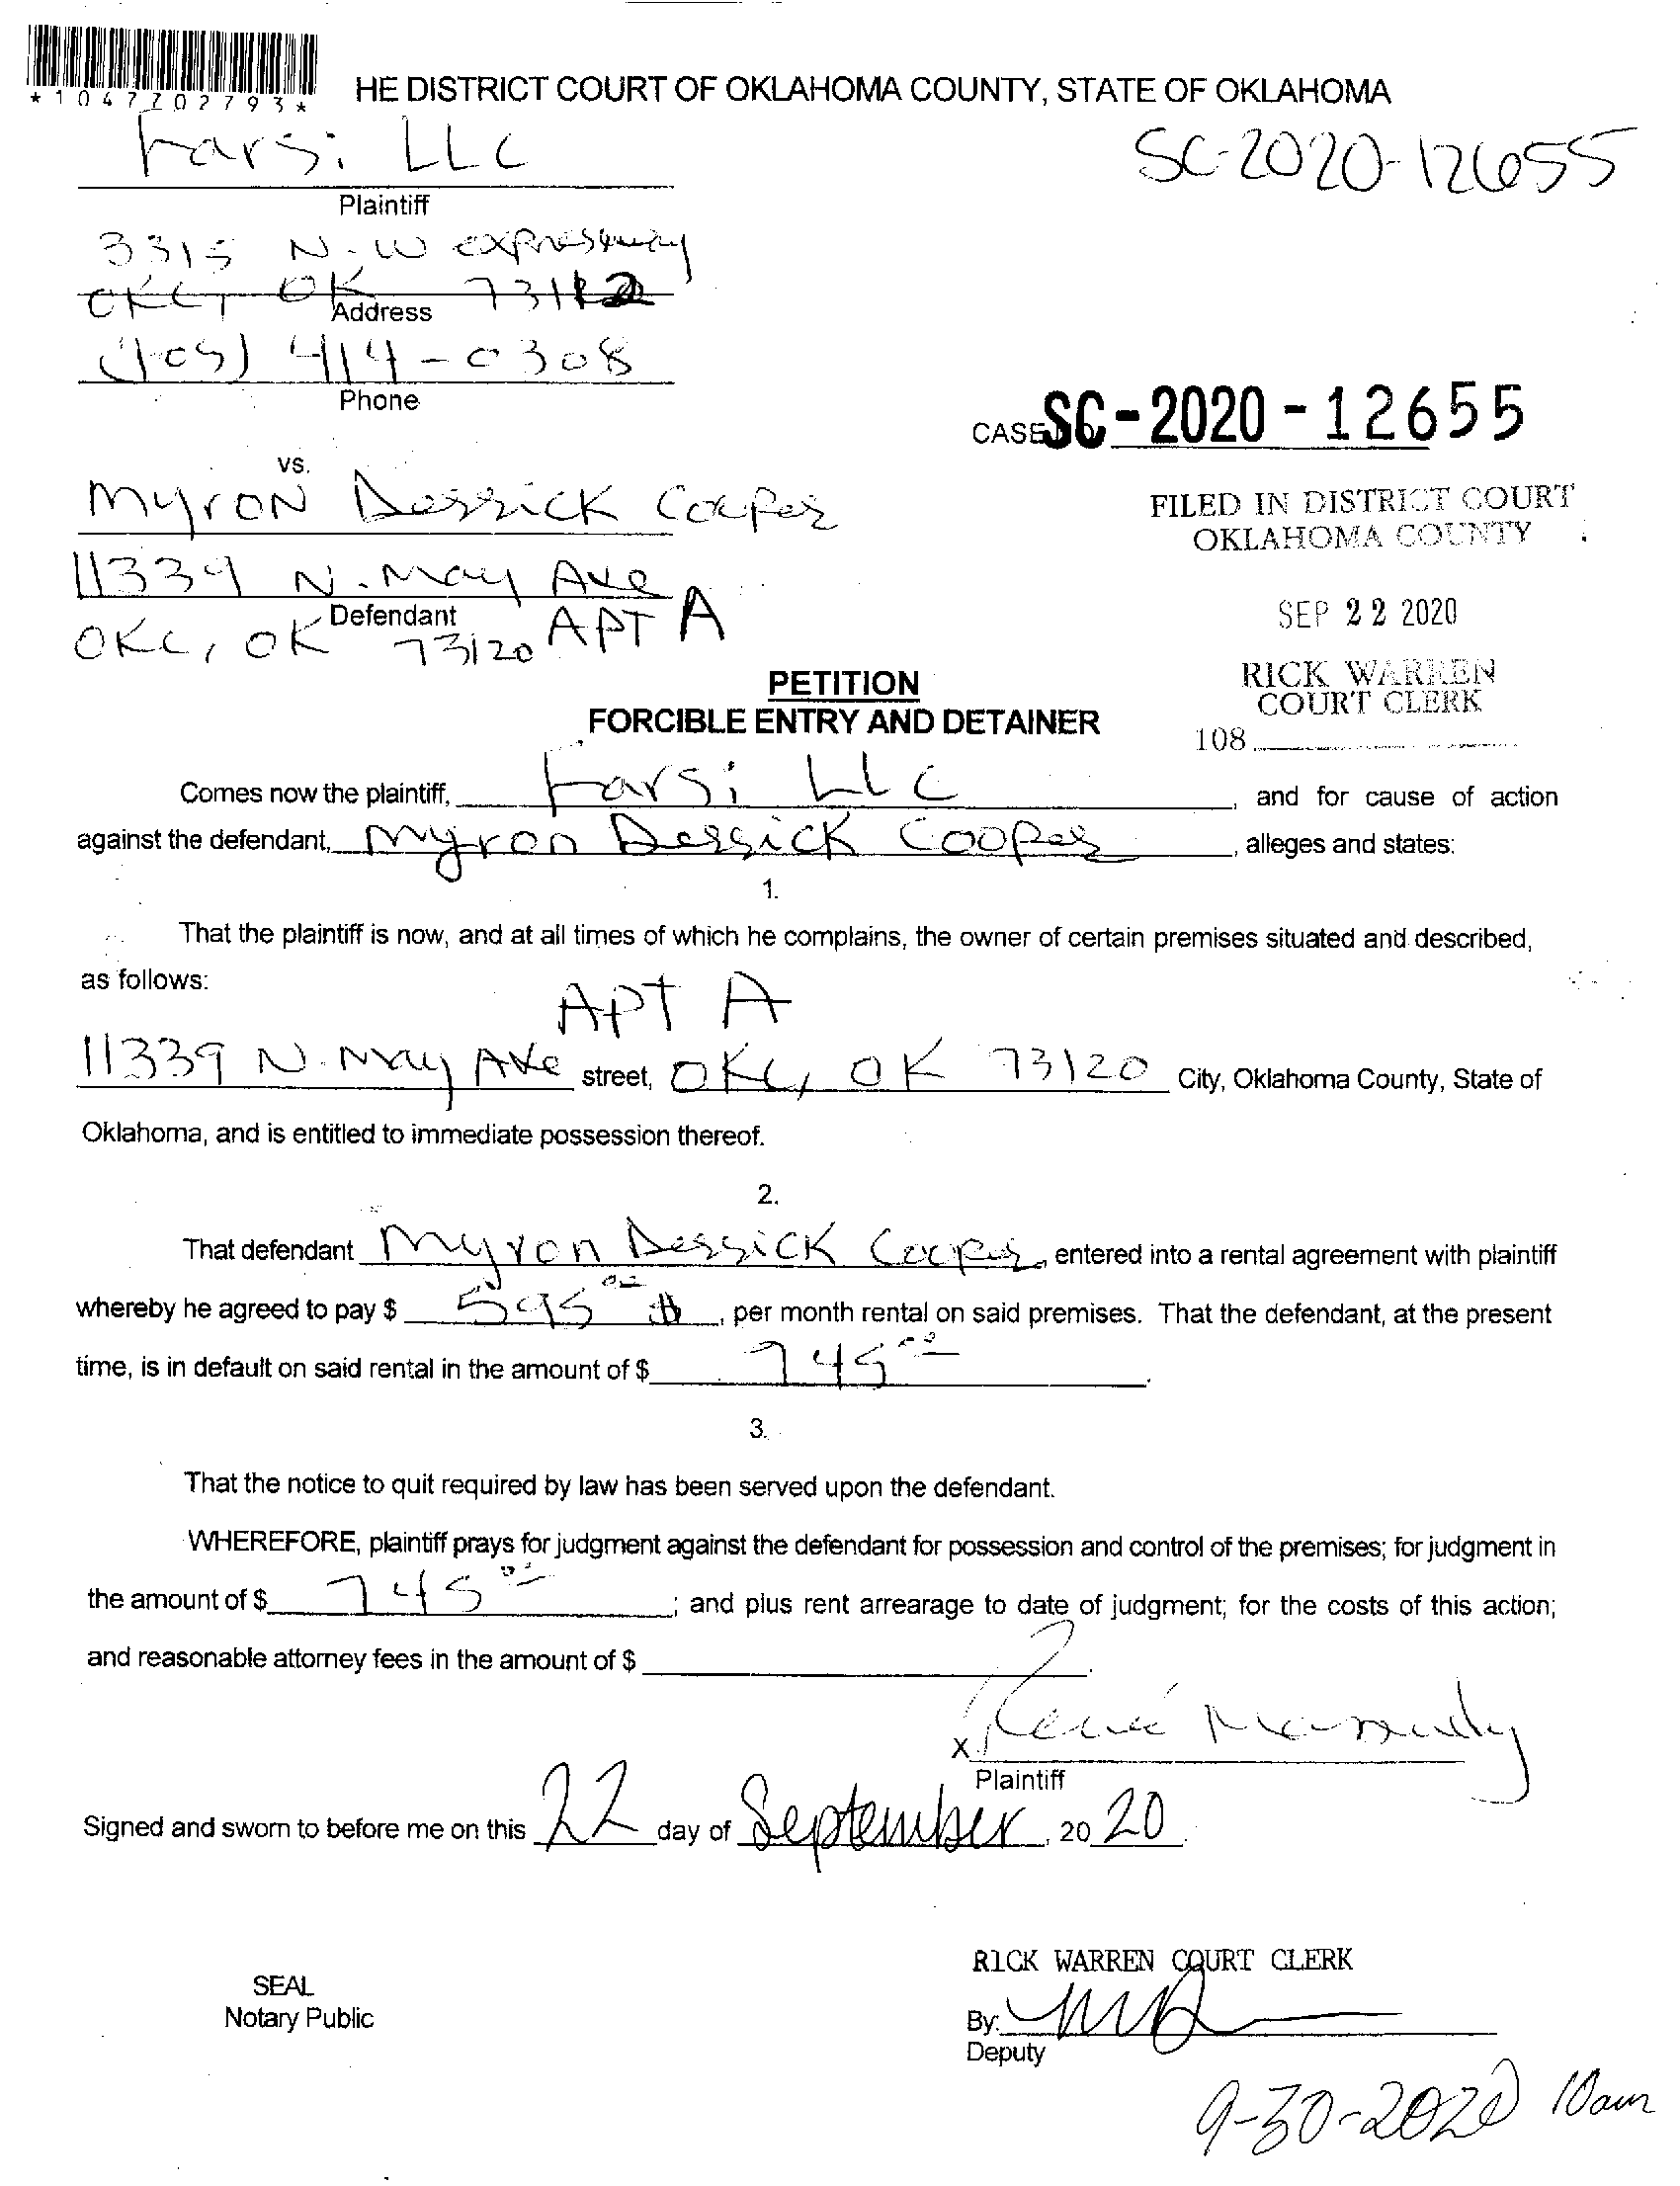 *1047702793*
HE DISTRICT COURT OF OKLAHOMA COUNTY, STATE OF OKLAHOMA
Farsi LLC
SC-2020-12655
Plaintiff
3315 N.W expressway
OKC, OK 73112
Address
(405) 414-0308
Phone
CASE SC-2020-12655
vs.
Myron Derrick Cooper
FILED IN DISTRICT COURT
OKLAHOMA COUNTY
11339 N. May Ave
Defendant
OKC, OK 73120 APT A
SEP 22 2020
RICK WARREN
COURT CLERK
108
PETITION
FORCIBLE ENTRY AND DETAINER
Comes now the plaintiff, Farsi LLC, and for cause of action
against the defendant, Myron Derrick Cooper, alleges and states:
1.
That the plaintiff is now, and at all times of which he complains, the owner of certain premises situated and described,
as follows:
APT A
11339 N. May Ave street, OKC, OK 73120 City, Oklahoma County, State of
Oklahoma, and is entitled to immediate possession thereof.
2.
That defendant Myron Derrick Cooper, entered into a rental agreement with plaintiff
whereby he agreed to pay $ 595 00, per month rental on said premises. That the defendant, at the present
time, is in default on said rental in the amount of $ 745 00.
3.
That the notice to quit required by law has been served upon the defendant.
WHEREFORE, plaintiff prays for judgment against the defendant for possession and control of the premises; for judgment in
the amount of $ 745 00; and plus rent arrearage to date of judgment; for the costs of this action;
and reasonable attorney fees in the amount of $
X
Plaintiff
Signed and sworn to before me on this 22 day of September, 2020.
RICK WARREN COURT CLERK
SEAL
Notary Public
By:
Deputy
9-30-2020 10am